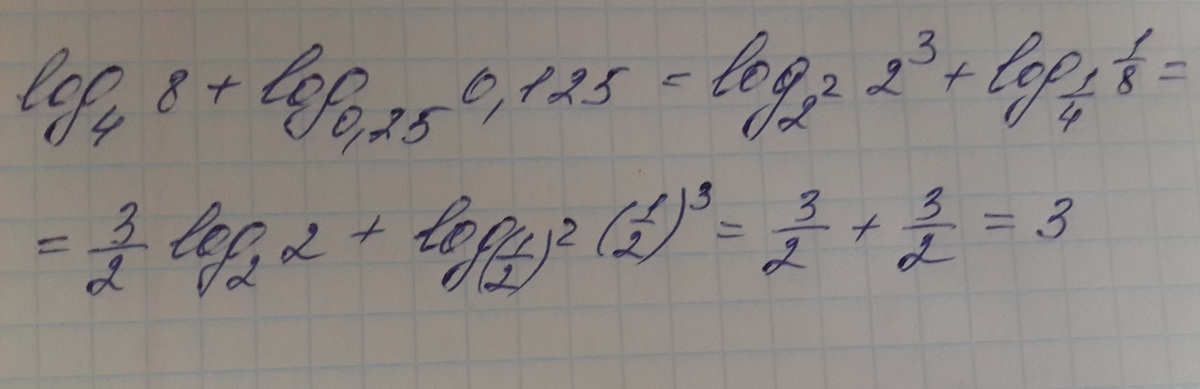 log₄ 8 + log₀,₂₅ 0,125 = log₂² 2³ + log_{1/4} 1/8 =
= 3/2 log₂ 2 + log_{(1/2)²} (1/2)³ = 3/2 + 3/2 = 3